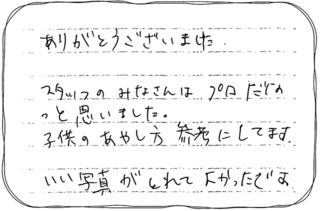 ありがとうございました.
スタッフのみなさんは プロだな
っと思いました。
子供のあやし方 参考にしてます.
いい写真がとれてよかったです